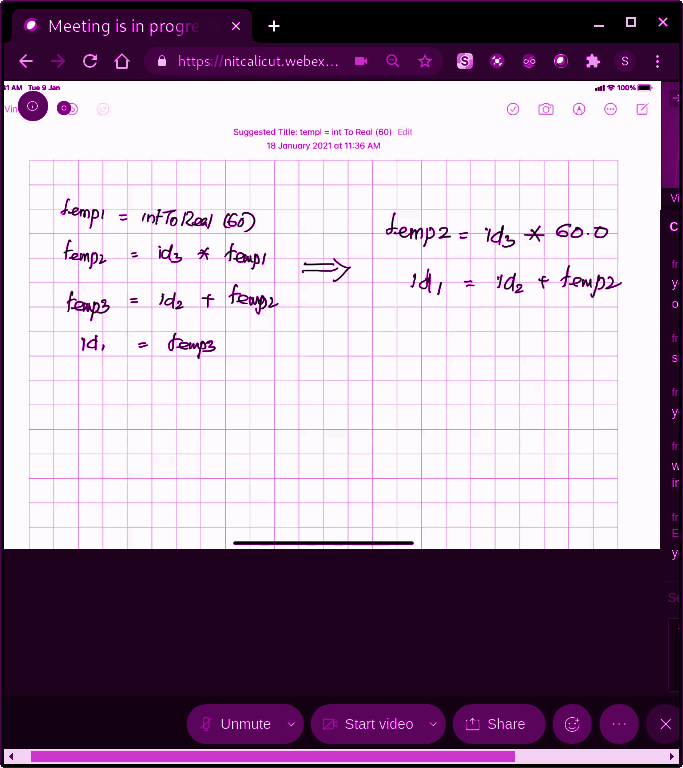 Meeting is in progre
https://nitcalicut.webex...
S
S
41 AM Tue 9 Jan
100%
Vin
Suggested Title: temp1 = int To Real (60) Edit
18 January 2021 at 11:36 AM
temp1 = intToReal (60)
temp2 = id3 * temp1
temp3 = id2 + temp2
id1 = temp3
⇒
temp2 = id3 * 60.0
id1 = id2 + temp2
Vi
C
fr
y
o
fr
s
fr
y
fr
w
in
fr
E
y
Se
Unmute
Start video
Share